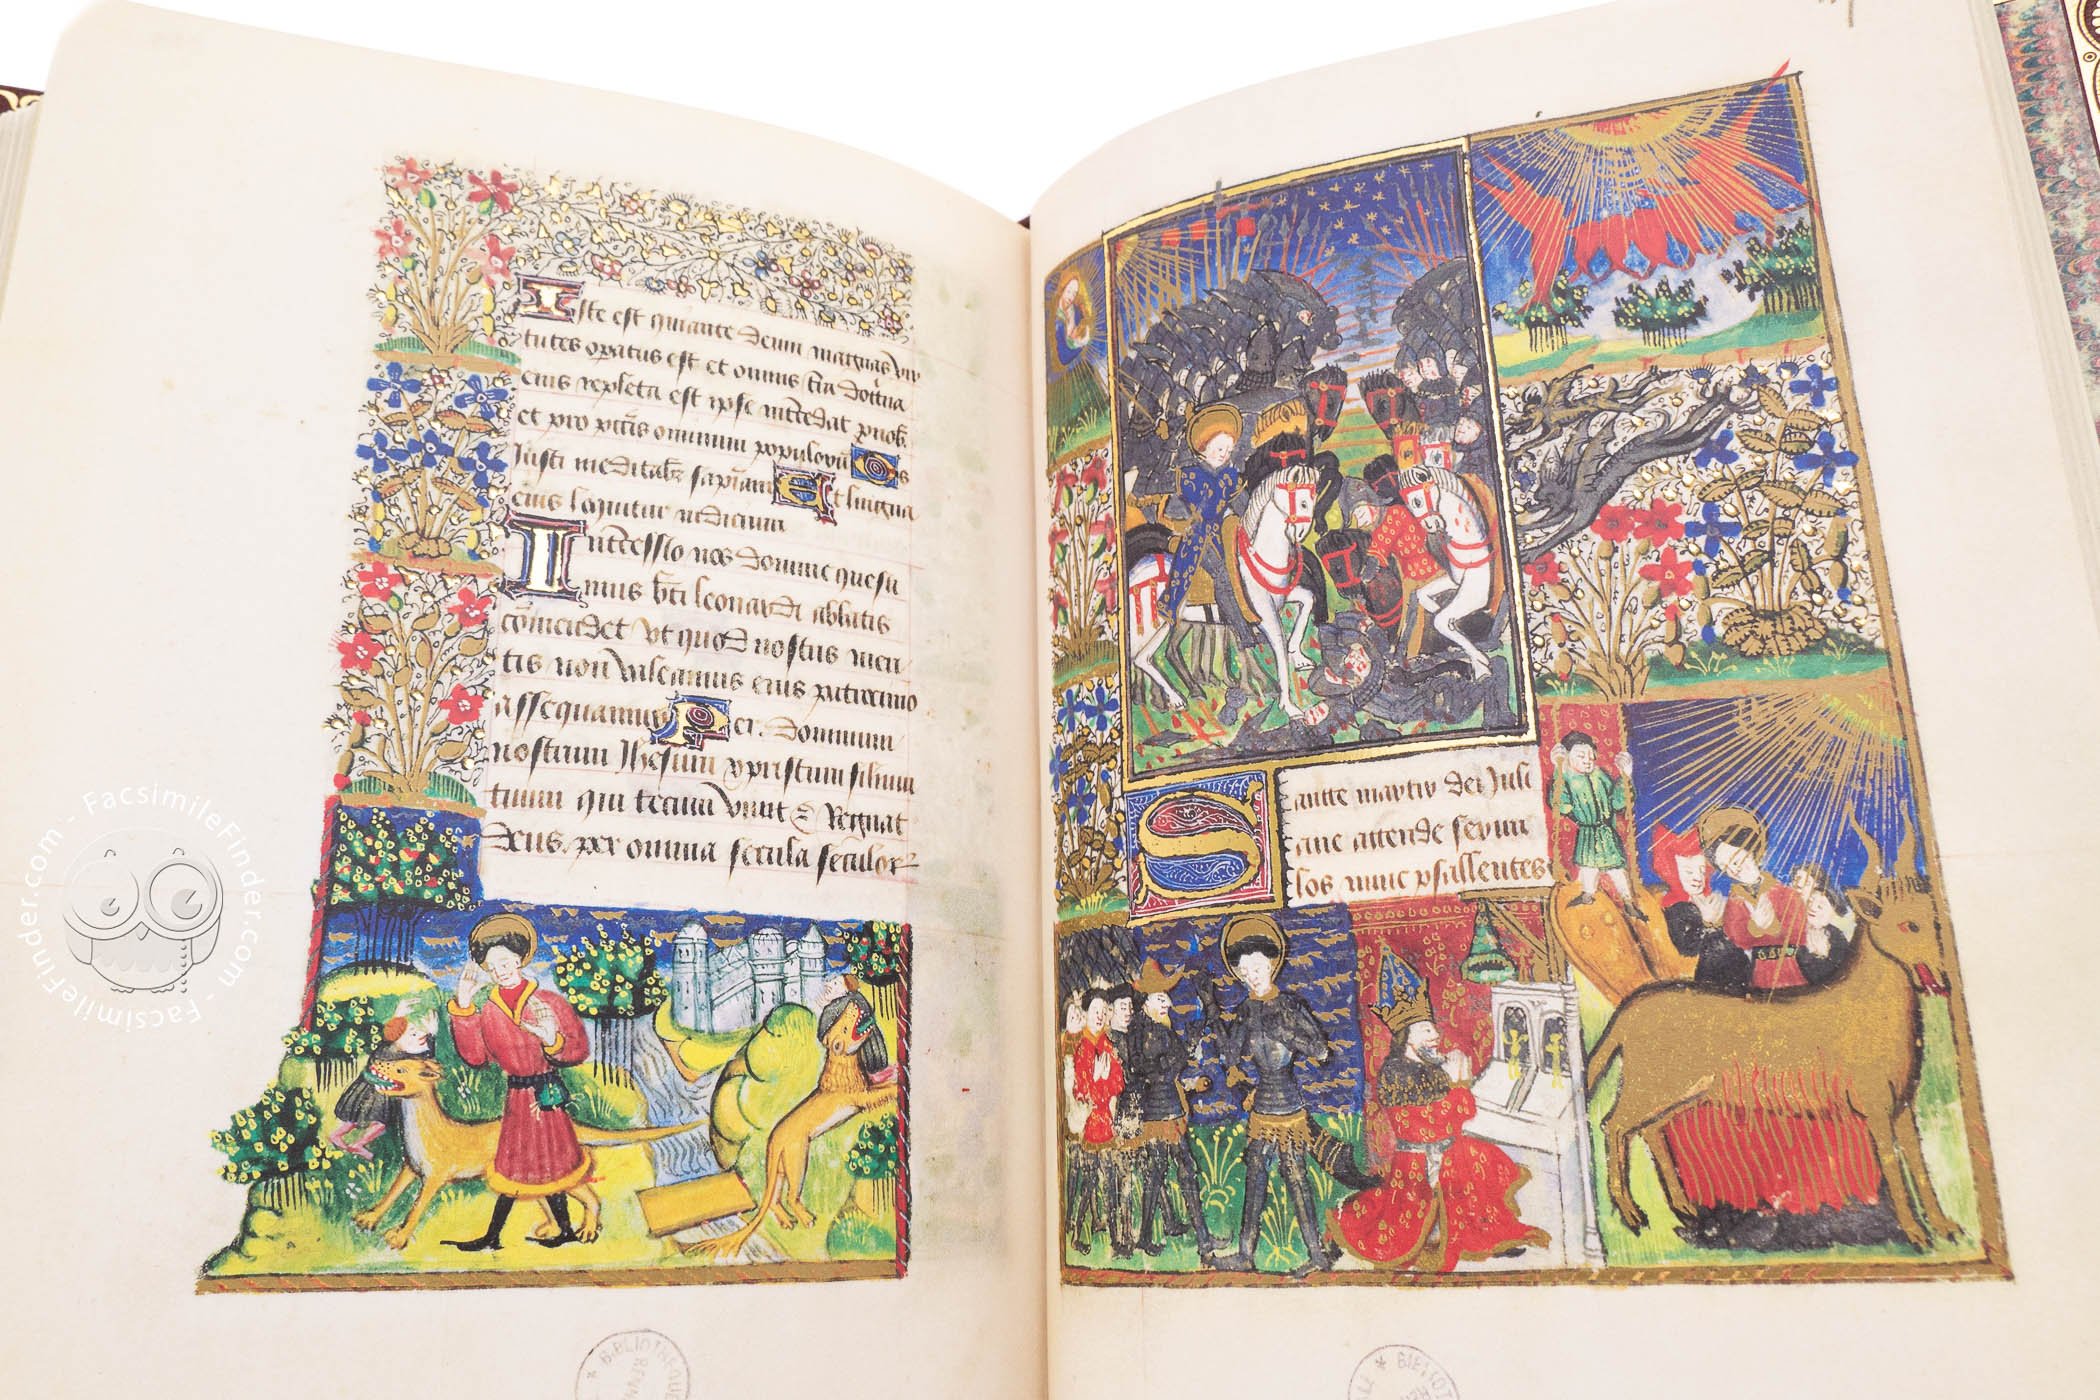 Iste est qui ante deum magnas vir
tutes operatus est et omnis t̄ra doct̄na
eius repleta est ipse intercedat pro nob.
et pro pct̄is omnium populorū Os
Justi meditab̄r sapiam Et lingua
eius loquitur iudicium
Intercessio nos domine quesu
mus bt̄i leonardi abbatis
cōmendet vt quod nostris meri
tis non valeamus eius patrocinio
assequamur Per. dominum
nostrum Jhesum xpristum filium
tuum qui tecum viuit & Regnat
Deus. per omnia secula seculor
Sancte martir dei Juli
ane attende seruu
los nunc psallentes
FacsimileFinder.com - FacsimileFinder.com -
* BIBLIOTHEQUE